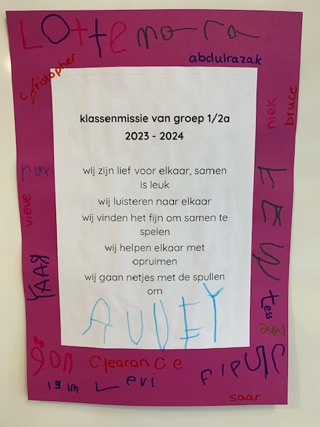 Lotte nora
abdulrazak
christopher
niek
bruce
klassenmissie van groep 1/2a
2023 - 2024
wij zijn lief voor elkaar, samen
is leuk
wij luisteren naar elkaar
wij vinden het fijn om samen te
spelen
wij helpen elkaar met
opruimen
wij gaan netjes met de spullen
om
AUDEY
vieve
tess
Clearance
Levi
saar